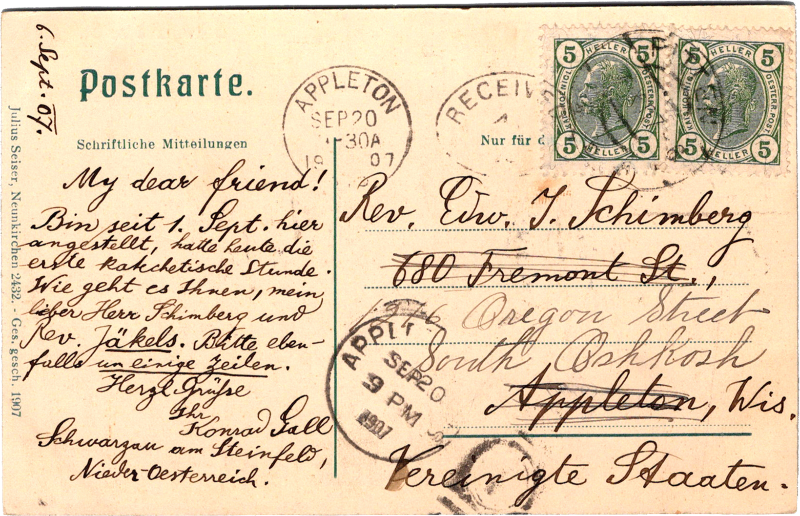 6. Sept. 07.
Postkarte.
Schriftliche Mitteilungen
Nur für d
Julius Seiser, Neunkirchen 2432. - Ges. gesch. 1907
APPLETON
SEP 20
30A
19 07
RECEIV
5 HELLER 5
KAIS. KOENIGL. OESTERR. POST
5 HELLER 5
5 HELLER 5
KAIS. KOENIGL. OESTERR. POST
5 HELLER 5
My dear friend!
Bin seit 1. Sept. hier
angestellt, hatte heute die
erste katechetische Stunde.
Wie geht es Ihnen, mein
lieber Herr Schimberg und
Rev. Jäkels. Bitte eben-
falls um einige Zeilen.
Herzl Grüße
Ihr
Konrad Gall
Schwarzau am Steinfeld,
Nieder-Oesterreich.
Rev. Edw. J. Schimberg
680 Fremont St.,
Oregon Street
South Oshkosh
Appleton, Wis.
Vereinigte Staaten.
APPL
SEP 20
9 PM
1907